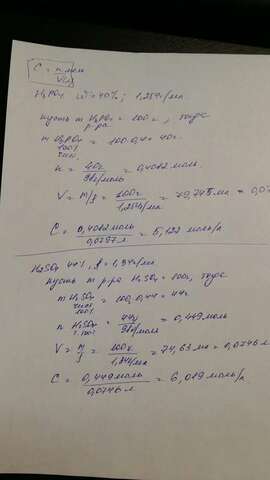 C = n моль / V(л)
H₃PO₄ W = 40% ; 1,254г/мл.
пусть m H₃PO₄ = 100г , тогда
р-ра
m H₃PO₄ = 100·0,4 = 40г.
100%
чист.
n = 40г / 98г/моль = 0,4082 моль.
V = m/ρ = 100г / 1,254г/мл = 79,745мл = 0,07
C = 0,4082 моль / 0,0797 л = 5,122 моль/л
H₂SO₄ 44%, ρ = 1,34г/мл.
пусть m р-ра H₂SO₄ = 100г, тогда
m H₂SO₄ = 100·0,44 = 44г
чист.
100%
n H₂SO₄ = 44г / 98г/моль = 0,449моль
ч. 100%
V = m/ρ = 100г / 1,34г/мл = 74,63 мл = 0,0746 л
C = 0,449моль / 0,0746 л = 6,019 моль/л